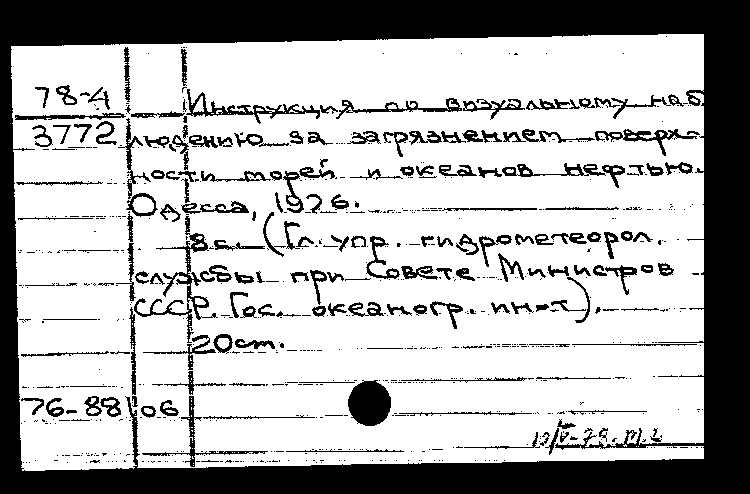 78-4 Инструкция по визуальному наб
3772 людению за загрязнением поверх-
ности морей и океанов нефтью.
Одесса, 1976.
8с. (Гл. упр. гидрометеорол.
службы при Совете Министров
СССР. Гос. океаногр. ин-т).
20см.
76-88106